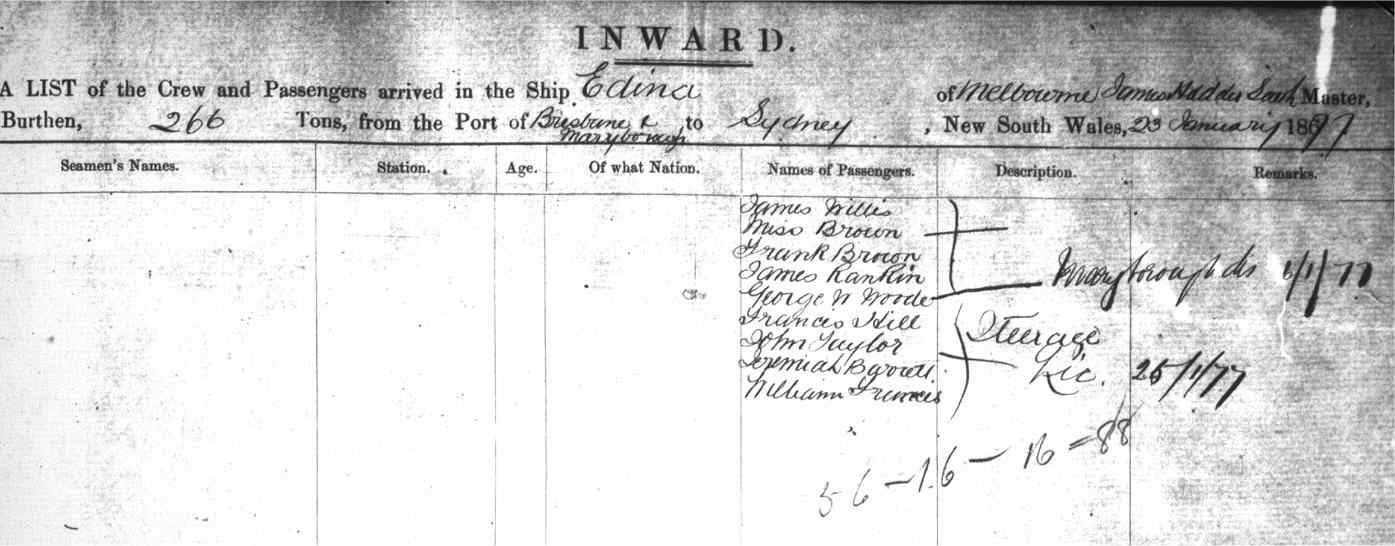 INWARD.
A LIST of the Crew and Passengers arrived in the Ship Edina of Melbourne James Master,
Burthen, 266 Tons, from the Port of Brisbane & Maryborough to Sydney, New South Wales, 23 January 1877
Seamen's Names. Station. Age. Of what Nation. Names of Passengers. Description. Remarks.
James Willis
Miss Brown
Frank Brown
James Rankin
George W Woode
Maryborough 1/1/77
Francis Hill
John Taylor
Steerage
Jeremiah
Lic. 25/1/77
William Francis
56-16-16=88